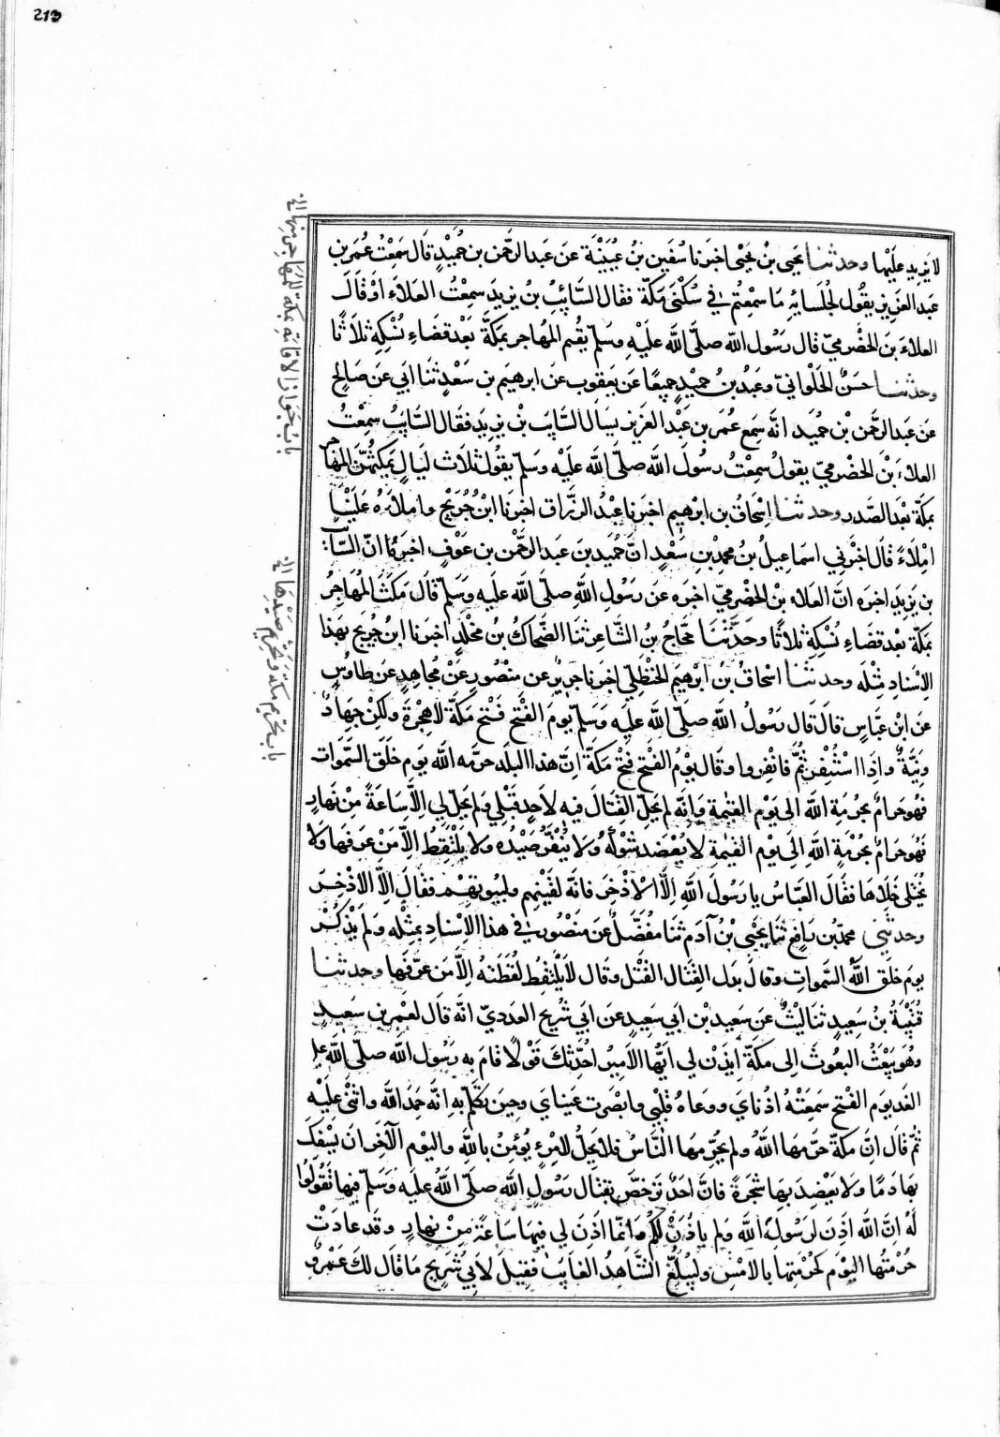 213
باب جواز الاقامة بمكة للمهاجر منها الخ
باب تحريم مكة وتحريم صيدها الخ
لا يزيد عليها وحدثنا يحيى بن يحيى اخبرنا سفين بن عيينة عن عبد الرحمن بن حميد قال سمعت عمر بن
عبد العزيز يقول لجلسائه ما سمعتم في سكنى مكة فقال السائب بن يزيد سمعت العلاء او قال
العلاء بن الحضرمي قال رسول الله صلى الله عليه وسلم يقيم المهاجر بمكة بعد قضاء نسكه ثلاثا
وحدثنا حسن الحلواني وعبد بن حميد جميعا عن يعقوب عن ابرهيم بن سعد ثنا ابي عن صالح
عن عبد الرحمن بن حميد انه سمع عمر بن عبد العزيز يسال السايب بن يزيد فقال السايب سمعت
العلاء بن الحضرمي يقول سمعت رسول الله صلى الله عليه وسلم يقول ثلاث ليال يمكثهن المهاجر
بمكة بعد الصدر وحدثنا اسحاق بن ابرهيم اخبرنا عبد الرزاق اخبرنا ابن جريج واملاه علينا
املاء قال اخبرني اسماعيل بن محمد بن سعد ان حميد بن عبد الرحمن بن عوف اخبره ان السائب
بن يزيد اخبره ان العلاء بن الحضرمي اخبره عن رسول الله صلى الله عليه وسلم قال مكث المهاجر
بمكة بعد قضاء نسكه ثلاثا وحدثنا حجاج بن الشاعر ثنا الضحاك بن مخلد اخبرنا ابن جريج بهذا
الاسناد مثله وحدثنا اسحاق بن ابرهيم الحنظلي اخبرنا جرير عن منصور عن مجاهد عن طاوس
عن ابن عباس قال قال رسول الله صلى الله عليه وسلم يوم الفتح فتح مكة لا هجرة ولكن جهاد
ونية واذا استنفرتم فانفروا وقال يوم الفتح فتح مكة ان هذا البلد حرمه الله يوم خلق السموات
فهو حرام بحرمة الله الى يوم القيمة وانه لم يحل القتال فيه لاحد قبلي ولم يحل لي الا ساعة من نهار
فهو حرام بحرمة الله الى يوم القيمة لا يعضد شوكه ولا ينفر صيده ولا يلتقط الا من عرفها ولا
يختلى خلاها فقال العباس يا رسول الله الا الاذخر فانه لقينهم ولبيوتهم فقال الا الاذخر
وحدثني محمد بن رافع ثنا يحيى بن آدم ثنا مفضل عن منصور في هذا الاسناد بمثله ولم يذكر
يوم خلق الله السموات وقال بدل القتال القتل وقال لا يلتقط لقطته الا من عرفها وحدثنا
قتيبة بن سعيد ثنا ليث عن سعيد بن ابي سعيد عن ابي شريح العدوي انه قال لعمر بن سعيد
وهو يبعث البعوث الى مكة ايذن لي ايها الامير احدثك قولا قام به رسول الله صلى الله عليه
الغد يوم الفتح سمعته اذناي ووعاه قلبي وابصرت عيناي وحين تكلم به انه حمد الله واثنى عليه
ثم قال ان مكة حرمها الله ولم يحرمها الناس فلا يحل لامرئ يؤمن بالله واليوم الآخر ان يسفك
بها دما ولا يعضد بها شجرة فان احد ترخص بقتال رسول الله صلى الله عليه وسلم فيها فقولوا
له ان الله اذن لرسوله الله ولم ياذن لكم وانما اذن لي فيها ساعة من نهار وقد عادت
حرمتها اليوم كحرمتها بالامس وليبلغ الشاهد الغايب فقيل لابي شريح ما قال لك عمرو